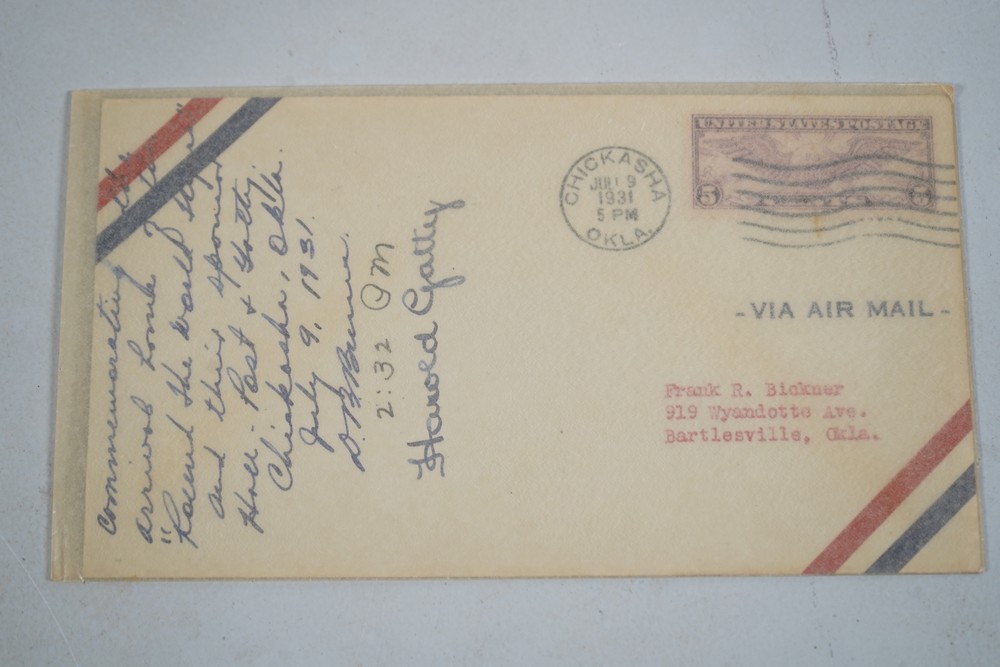 commemorating the
arrival home from
"Round the World trip"
and their sponsor
Hall - Post & Gatty
Chickasha, Okla.
July 9, 1931.
2:32 PM
Harold Gatty
CHICKASHA
JUL 9
1931
5 PM
OKLA.
UNITED STATES POSTAGE
5
- VIA AIR MAIL -
Frank R. Bickner
919 Wyandotte Ave.
Bartlesville, Okla.